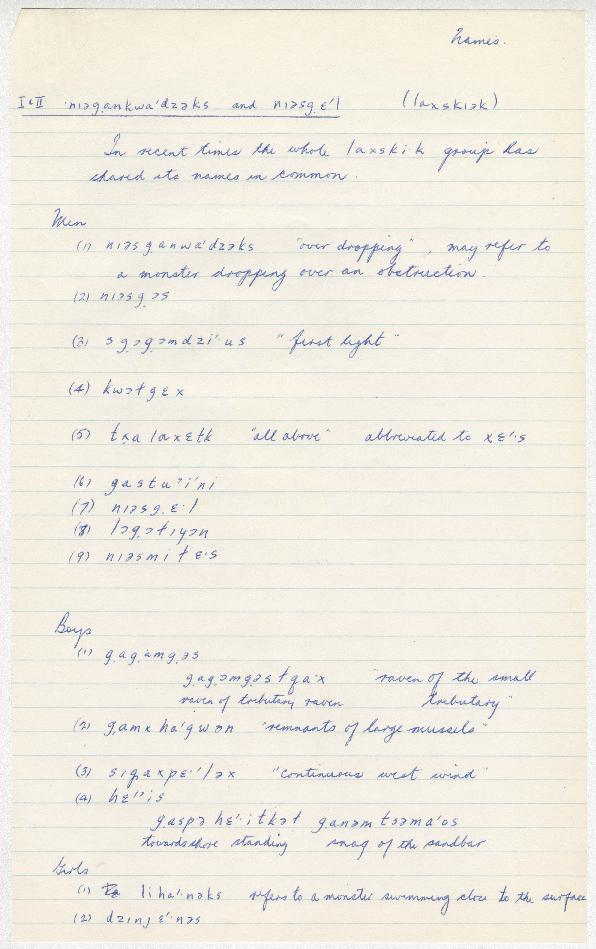 Names.
I & II 'nıəg̣ankwa'dzəks and nıəsg̣ɛ'l (laxskıək)
In recent times the whole laxski·k group has
shared its names in common.
Men
(1) nıəsg̣anwa'dzəks "over dropping", may refer to
a monster dropping over an obstruction.
(2) nıəsg̣əs
(3) sg̣əg̣əmdzi'·us "first light"
(4) kwətgɛx
(5) txalaxɛtk "all above" abbreviated to xɛ'·s
(6) gastuʔi'ni
(7) nıəsg̣ɛ·l
(8) ləg̣əłıyən
(9) nıəsmiłɛ·s
Boys
(1) g̣ag̣amg̣əs
g̣ag̣əmg̣əsłg̣a'x "raven of the small
raven of tributary raven tributary"
(2) g̣amxha'gwən "remnants of large mussels"
(3) sıg̣axpɛ'·ləx "continuous west wind"
(4) hɛ'·is
g̣aspə hɛ'·itkəł g̣anəm tsəma'os
towards shore standing snag of the sandbar
Girls
(1) liha'·nəks refers to a monster swimming close to the surface
(2) dzıŋɛ'·nəs